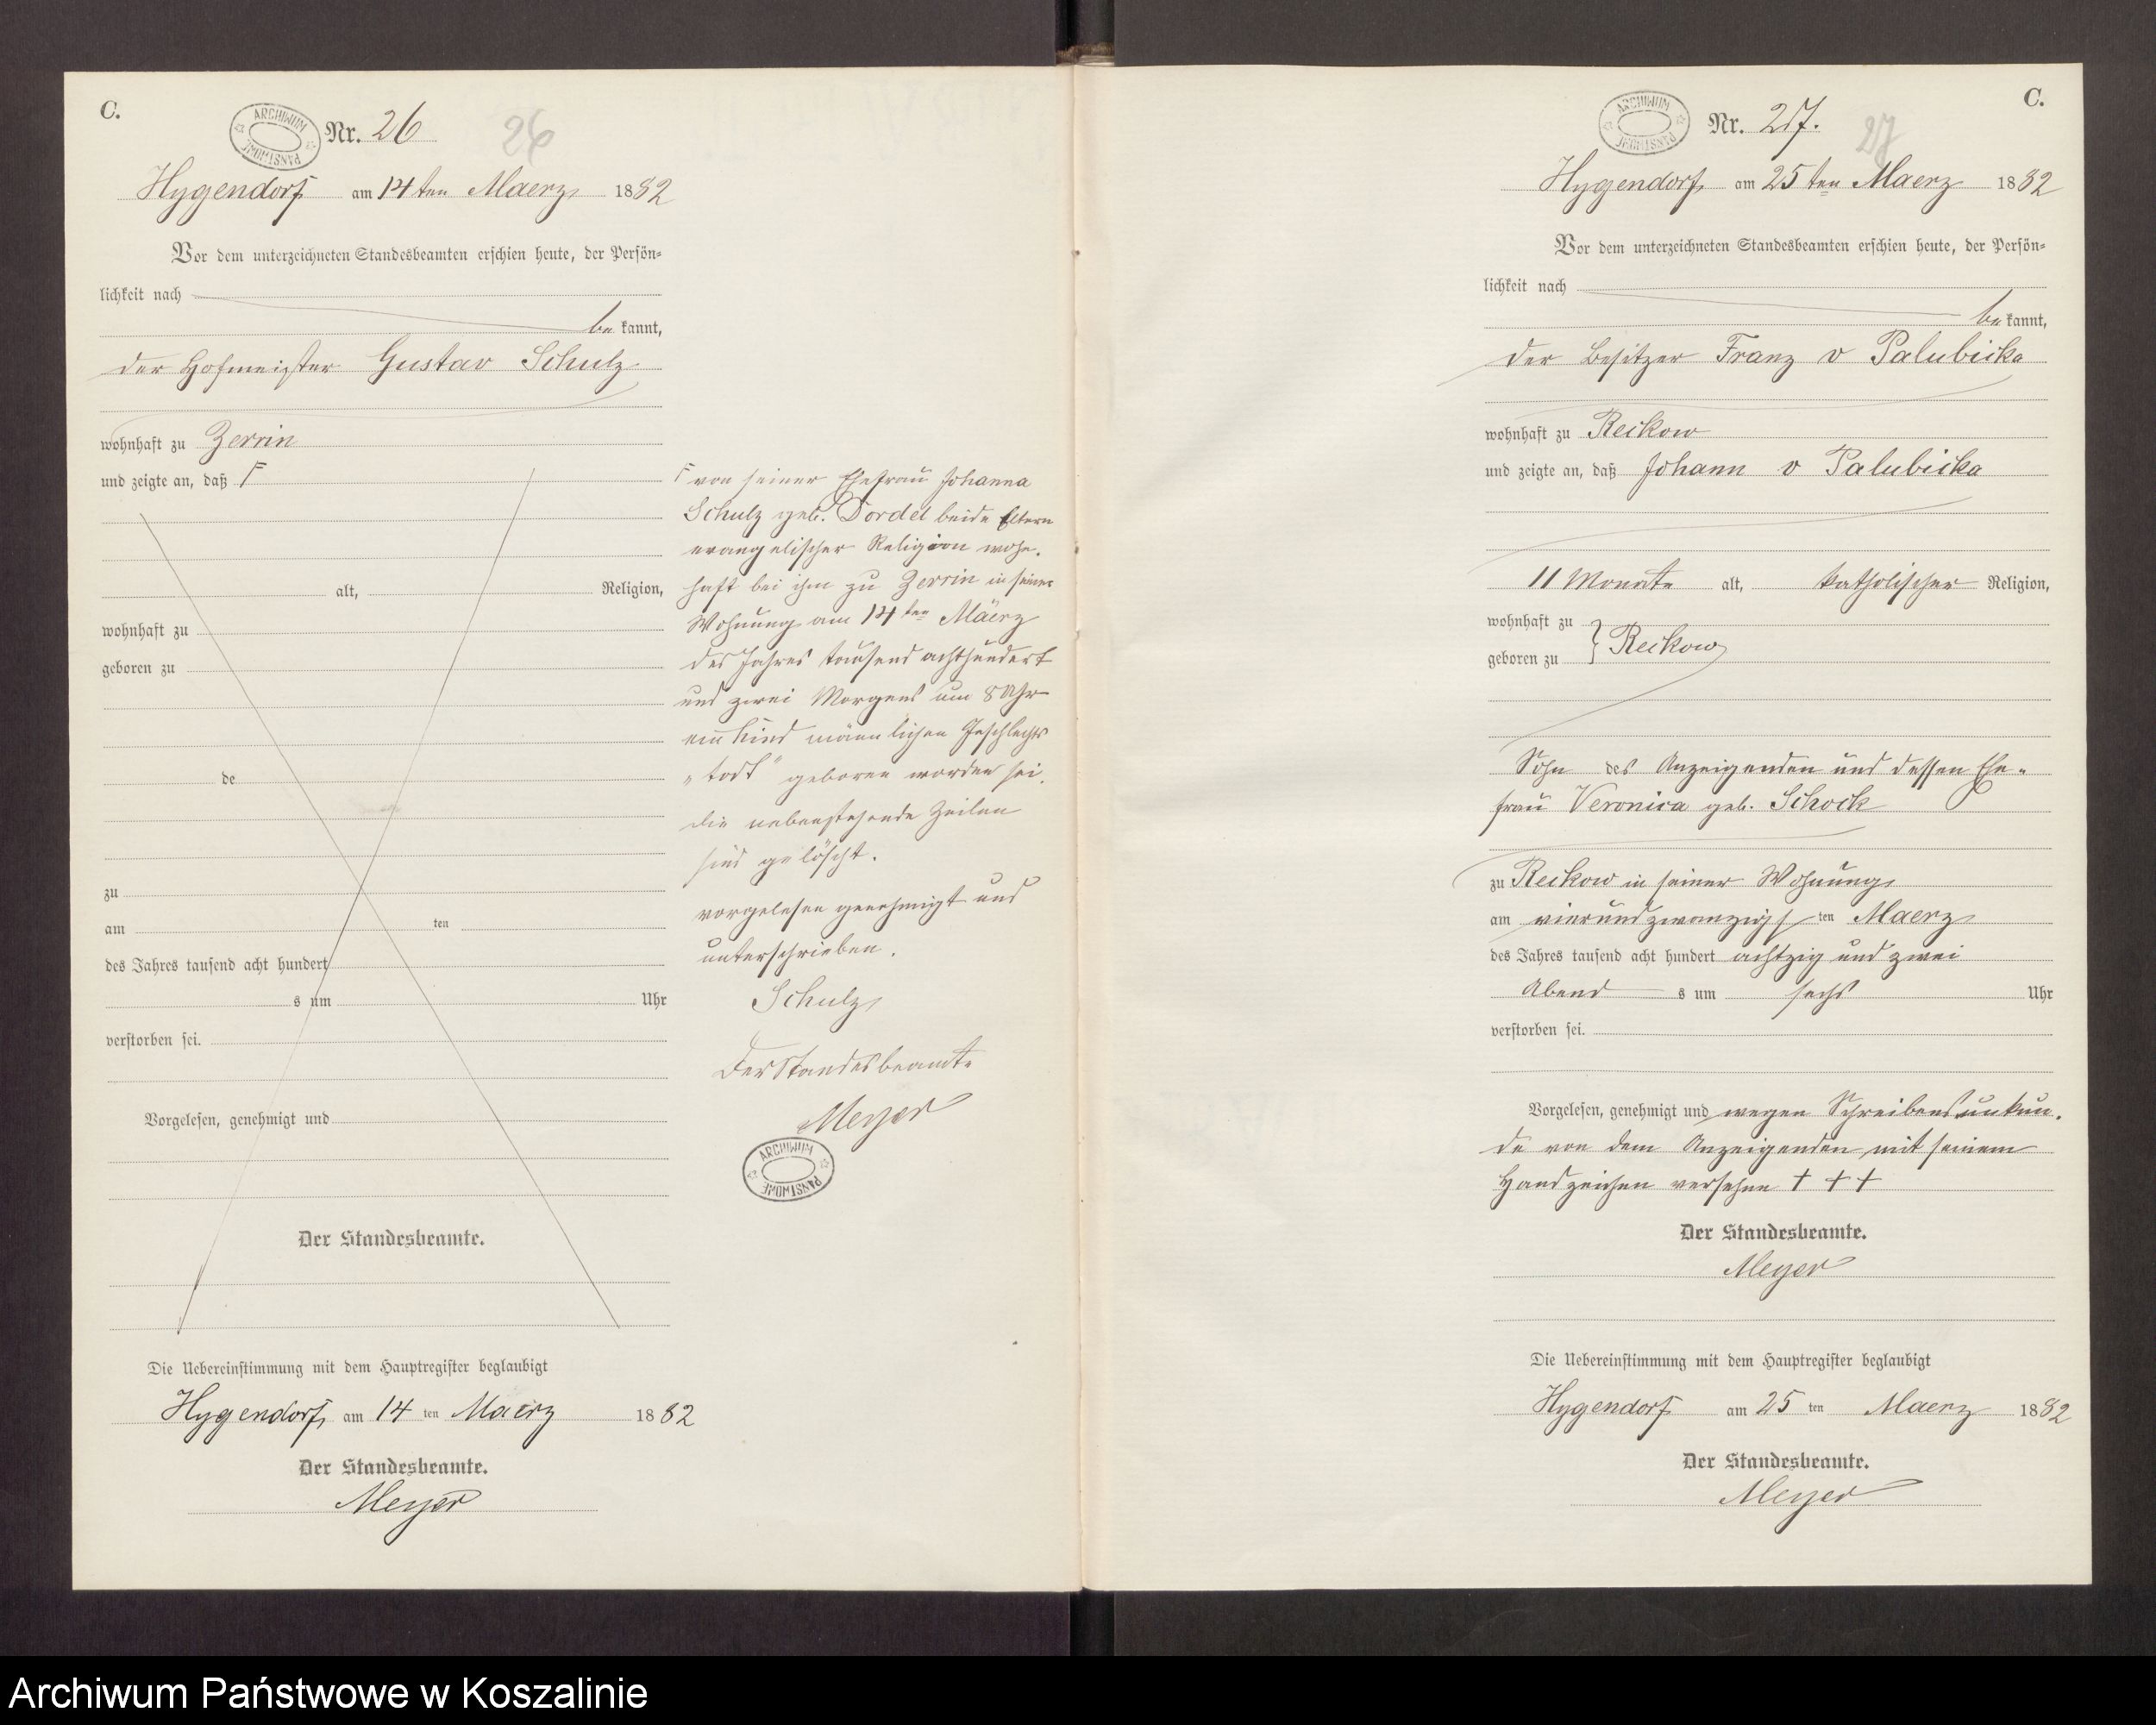 C.
ARCHIWUM PAŃSTWOWE
Nr. 26
26
Hygendorf am 14ten Maerz 1882
Vor dem unterzeichneten Standesbeamten erschien heute, der Persön-
lichkeit nach
be kannt,
der Hofmeister Gustav Schulz
wohnhaft zu Zerrin
und zeigte an, daß Γ
alt, Religion,
wohnhaft zu
geboren zu
de
zu
am ten
des Jahres tausend acht hundert
s um Uhr
verstorben sei.
Vorgelesen, genehmigt und
Der Standesbeamte.
Die Uebereinstimmung mit dem Hauptregister beglaubigt
Hygendorf am 14 ten Maerz 1882
Der Standesbeamte.
Meyer
Γ von seiner Ehefrau Johanna
Schulz geb. Dordel beide Eltern
evangelischer Religion wohn-
haft bei ihm zu Zerrin in seiner
Wohnung am 14ten Maerz
des Jahres tausend achthundert
und zwei Morgens um 8 Uhr
ein Kind männlichen Geschlechts
„todt" geboren worden sei.
die nebenstehende Zeilen
sind gelöscht.
vorgelesen genehmigt und
unterschrieben.
Schulz
Der Standesbeamte
Meyer
ARCHIWUM PAŃSTWOWE
C.
ARCHIWUM PAŃSTWOWE
Nr. 27.
27
Hygendorf am 25ten Maerz 1882
Vor dem unterzeichneten Standesbeamten erschien heute, der Persön-
lichkeit nach
be kannt,
der Besitzer Franz v Palubicka
wohnhaft zu Reckow
und zeigte an, daß Johann v Palubicka
11 Monate alt, katholischer Religion,
wohnhaft zu
geboren zu } Reckow
Sohn des Anzeigenden und dessen Ehe-
frau Veronica geb. Schock
zu Reckow in seiner Wohnung
am vierundzwanzigsten Maerz
des Jahres tausend acht hundert achtzig und zwei
Abend s um sechs Uhr
verstorben sei.
Vorgelesen, genehmigt und wegen Schreibensunkun-
de von dem Anzeigenden mit seinem
Handzeichen versehen + + +
Der Standesbeamte.
Meyer
Die Uebereinstimmung mit dem Hauptregister beglaubigt
Hygendorf am 25 ten Maerz 1882
Der Standesbeamte.
Meyer
Archiwum Państwowe w Koszalinie